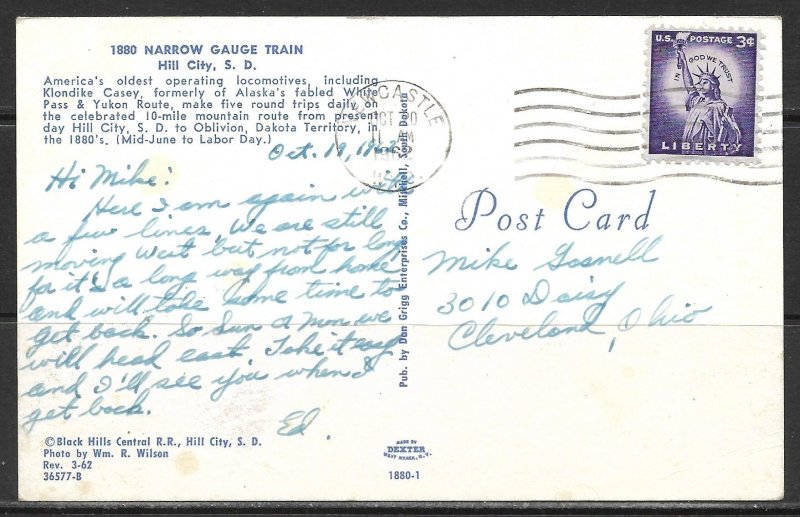 1880 NARROW GAUGE TRAIN
Hill City, S. D.
America's oldest operating locomotives, including
Klondike Casey, formerly of Alaska's fabled White
Pass & Yukon Route, make five round trips daily on
the celebrated 10-mile mountain route from present
day Hill City, S. D. to Oblivion, Dakota Territory, in
the 1880's. (Mid-June to Labor Day.)
Oct. 19, 1962
Hi Mike:
Here I am again with
a few lines. We are still
moving West but not for long
for it's a long way from home
and will take some time to
get back. So Sun or Mon we
will head east. Take it easy
and I'll see you when I
get back.
Ed.
©Black Hills Central R.R., Hill City, S. D.
Photo by Wm. R. Wilson
Rev. 3-62
36577-B
Pub. by Don Grigg Enterprises Co., Mitchell, South Dakota
MADE BY
DEXTER
WEST NYACK, N.Y.
1880-1
NEWCASTLE
OCT 20
M
1962
U.S. POSTAGE 3¢
IN GOD WE TRUST
LIBERTY
Post Card
Mike Gosnell
3010 Daisy
Cleveland, Ohio